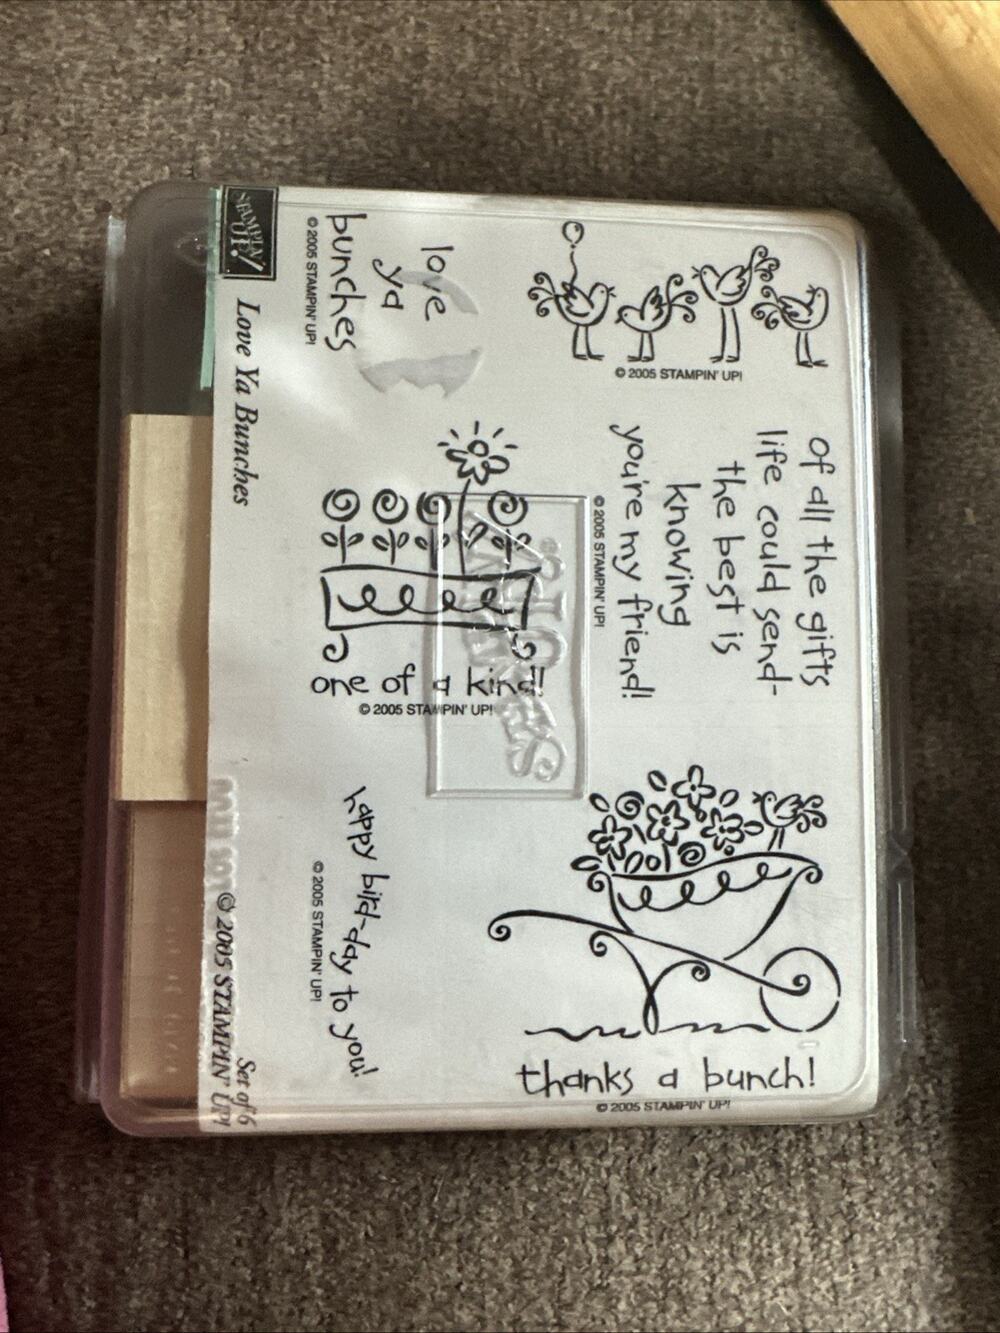 STAMPIN' UP!
Love Ya Bunches
Set of 6
© 2005 STAMPIN' UP!
love
ya
bunches
© 2005 STAMPIN' UP!
© 2005 STAMPIN' UP!
of all the gifts
life could send-
the best is
knowing
you're my friend!
© 2005 STAMPIN' UP!
one of a kind!
© 2005 STAMPIN' UP!
happy bird-day to you!
© 2005 STAMPIN' UP!
thanks a bunch!
© 2005 STAMPIN' UP!